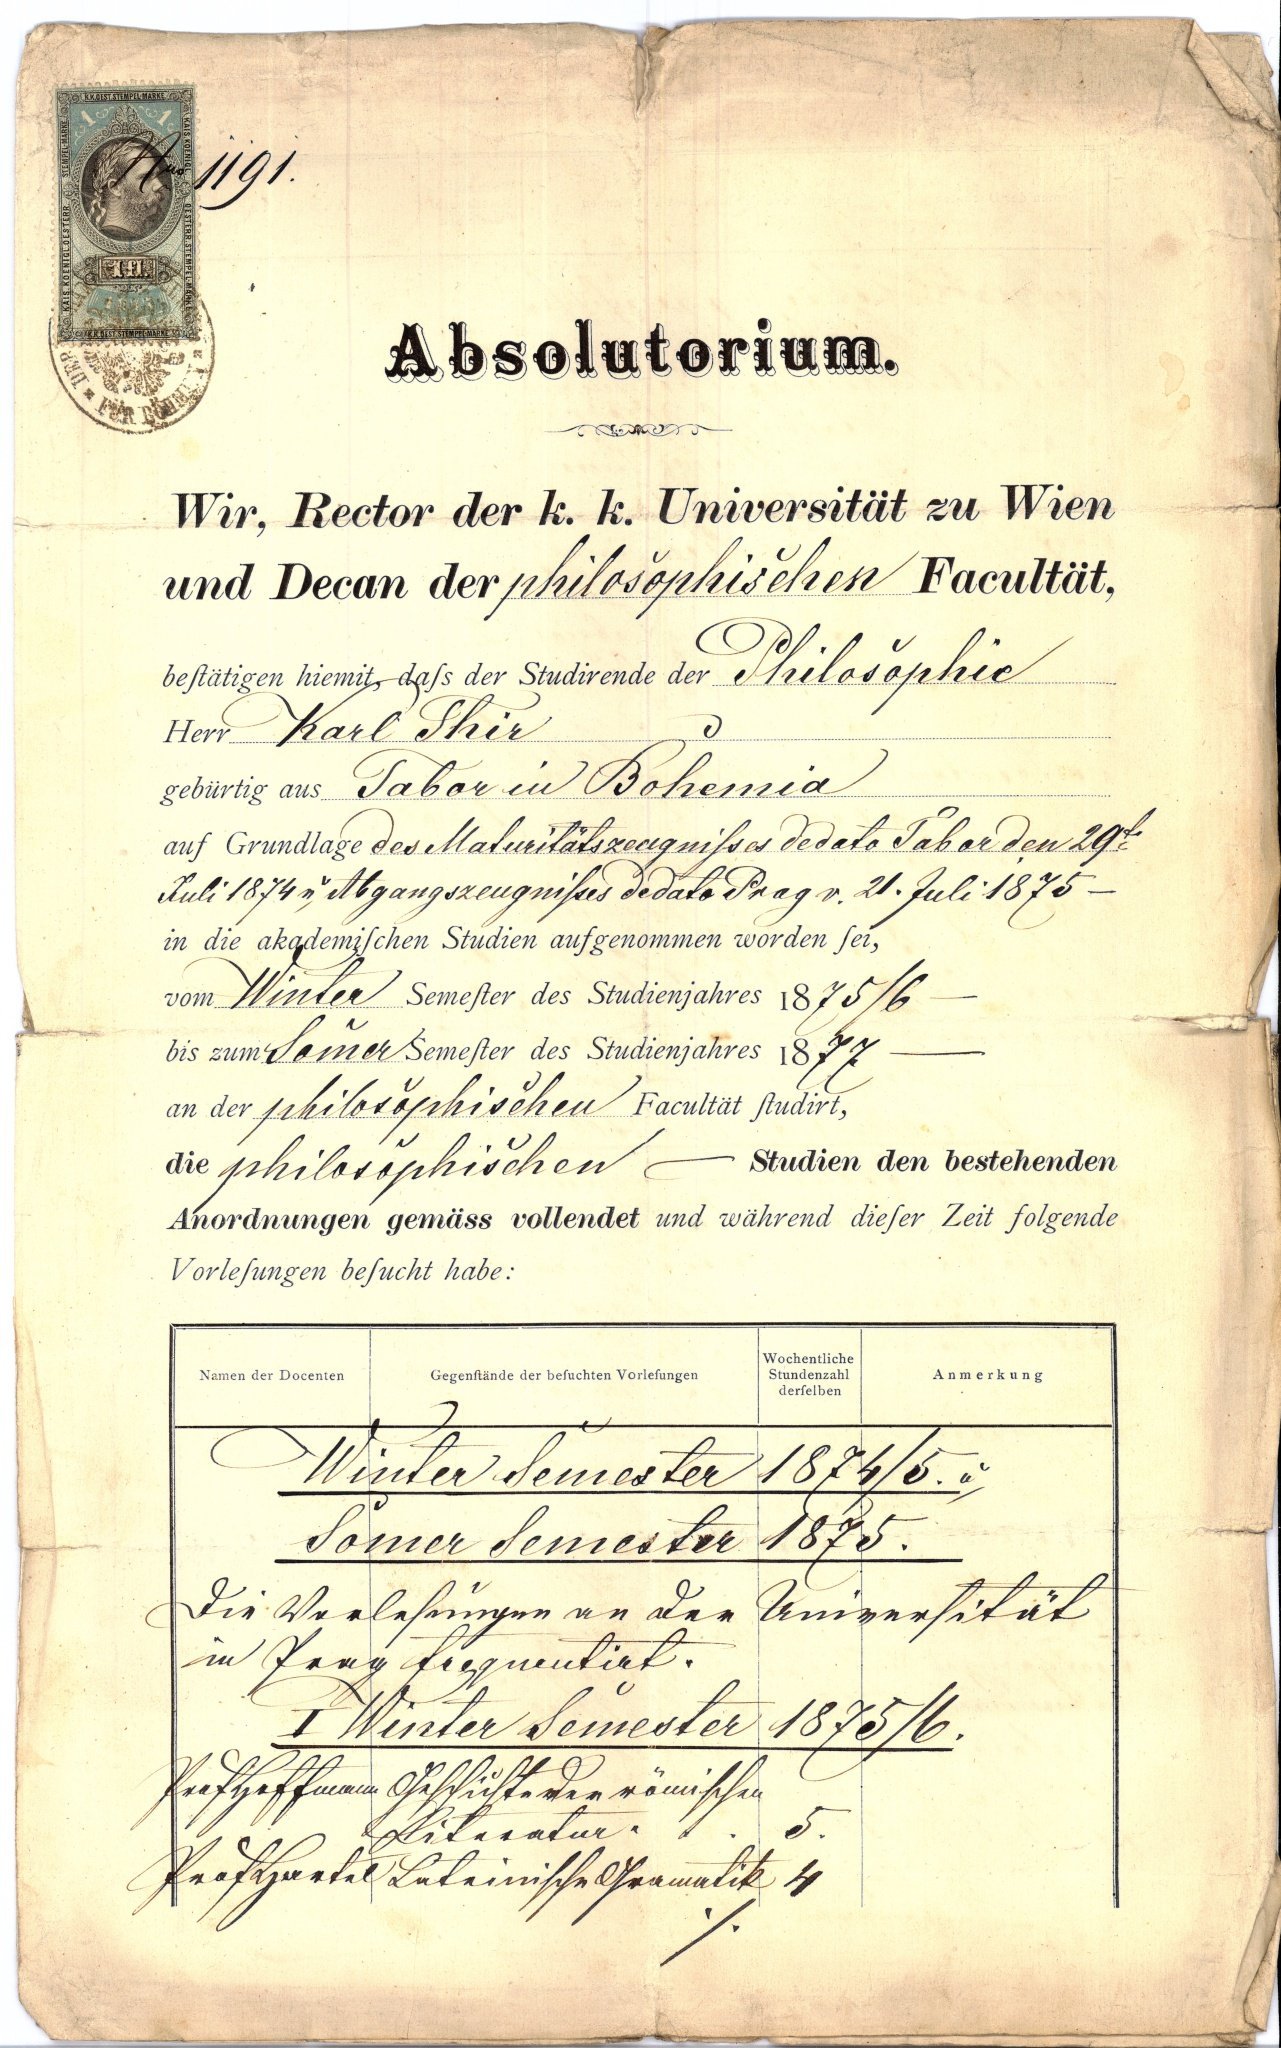 K.K. OEST. STEMPEL-MARKE
STEMPEL-MARKE
KAIS. KOENIGL. OESTERR.
KAIS. KOENIGL.
OESTERR. STEMPEL-MARKE
1 1
1 fl.
K.K. OEST. STEMPEL-MARKE
Nro 1191.
DER
FÜR BÖHM
Absolutorium.
Wir, Rector der k. k. Universität zu Wien
und Decan der philosophischen Facultät,
beſtätigen hiemit, daſs der Studirende der Philosophie
Herr Karl Thir
gebürtig aus Tabor in Bohemia
auf Grundlage des Maturitätszeugnisses de dato Tabor den 29t.
Juli 1874 u. Abgangszeugnisses de dato Prag v. 21. Juli 1875 —
in die akademiſchen Studien aufgenommen worden ſei,
vom Winter Semeſter des Studienjahres 1875/6 —
bis zum Som̄er Semeſter des Studienjahres 1877 —
an der philosophischen Facultät ſtudirt,
die philosophischen — Studien den bestehenden
Anordnungen gemäss vollendet und während dieſer Zeit folgende
Vorleſungen beſucht habe:
Namen der Docenten Gegenſtände der beſuchten Vorleſungen Wochentliche Stundenzahl derſelben Anmerkung
Winter Semester 1874/5. u.
Som̄er Semester 1875.
Die Vorlesungen an der Universität
in Prag frequentirt.
I Winter Semester 1875/6.
Prof Hoffmann Geschichte der römischen
Literatur . . . 5.
Prof Hartel Lateinische Grammatik 4
./.